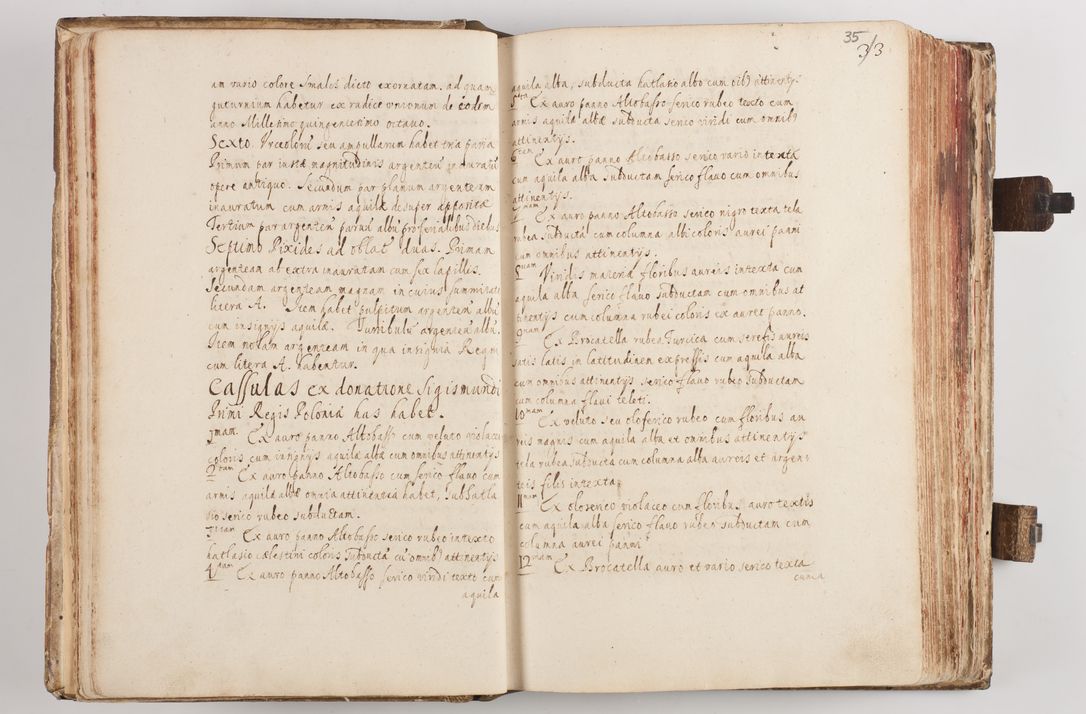 am vario colore Smalcz dicto exornatam. ad quam
guturnium habetur ex radice unionum de eodem
anno Millesimo quingentesimo octavo.
Sexto. Vrceolorũ seu ampullarum habet tria paria
Primum par iustæ magnitudinis argenteũ inauratũ
opere antiquo. Secundum par planum argenteum
inauratum cum armis aquilæ desuper appositæ
Tertium par argenteũ parvũ albũ pro ferialibus diebus
Septimo Pixides ad oblat: duas. Primam
argenteam ab extra inauratam cum sex lapillis.
Secundam argenteam magnam in cuius summitate
litera A. Item habet pulpitum argenteũ albũ
cum insignijs aquilæ. Turribulũ argenteũ albũ.
Item nolam argenteam in qua insignia Regni
cum litera A. habentur.
Cassulas ex donatione Sigismundi
Primi Regis Poloniæ has habet.
1mam. Ex auro panno Altobasso cum veluto violacei
coloris cum insignijs aquilæ albæ cum omnibus attinentijs
2dam Ex auro panno Altobasso cum serico flavo cum
armis aquilæ albæ omnia attinentia habet, sub hatla
sio serico rubeo subductam.
3tiam Ex auro panno Altobasso serico rubeo intexto
hatlasio cælestini coloris subductã cũ omnibꝫ attinentijs
4tam Ex auro panno Altobasso serico viridi texto cum
aquila
35
33
aquila alba, subducta hatlasio albo cum oibꝫ attinentijs
5tam Ex auro panno Altobasso serico rubeo texto cum
armis aquilæ albæ subducta serico viridi cum omnibꝫ
attinentijs.
6tam Ex auro panno Altobasso serico vario intextã
cum aquila alba subductam serico flavo cum omnibus
attinentijs.
7mam Ex auro panno Altobasso serico nigro texta tela
rubea subducta cum columna albi coloris aurei panni
cum omnibus attinentijs.
8vam Viridis materia floribus aureis intexta cum
aquila alba serico flavo subductam cum omnibus at
tinentijs cum columna rubei coloris ex aureo panno.
9nam Ex Brocatella rubea Turcica cum strefis aureis
satis latis in latitudinem expressis cum aquila alba
cum omnibus attinentijs serico flavo rubeo subductam
cum columna flavi teloti.
10mam Ex veluto seu oloserico rubeo cum floribus au
reis magnis cum aquila alba et omnibus attinentijs
tela rubea subducta cum columna alba aureis et argen
teis filis intexta.
11mam Ex oloserico violaceo cum floribus auro textis
cum aquila alba serico flavo rubeo subductam cum
columna aurei panni.
12mam Ex Brocatella auro et vario serico texta